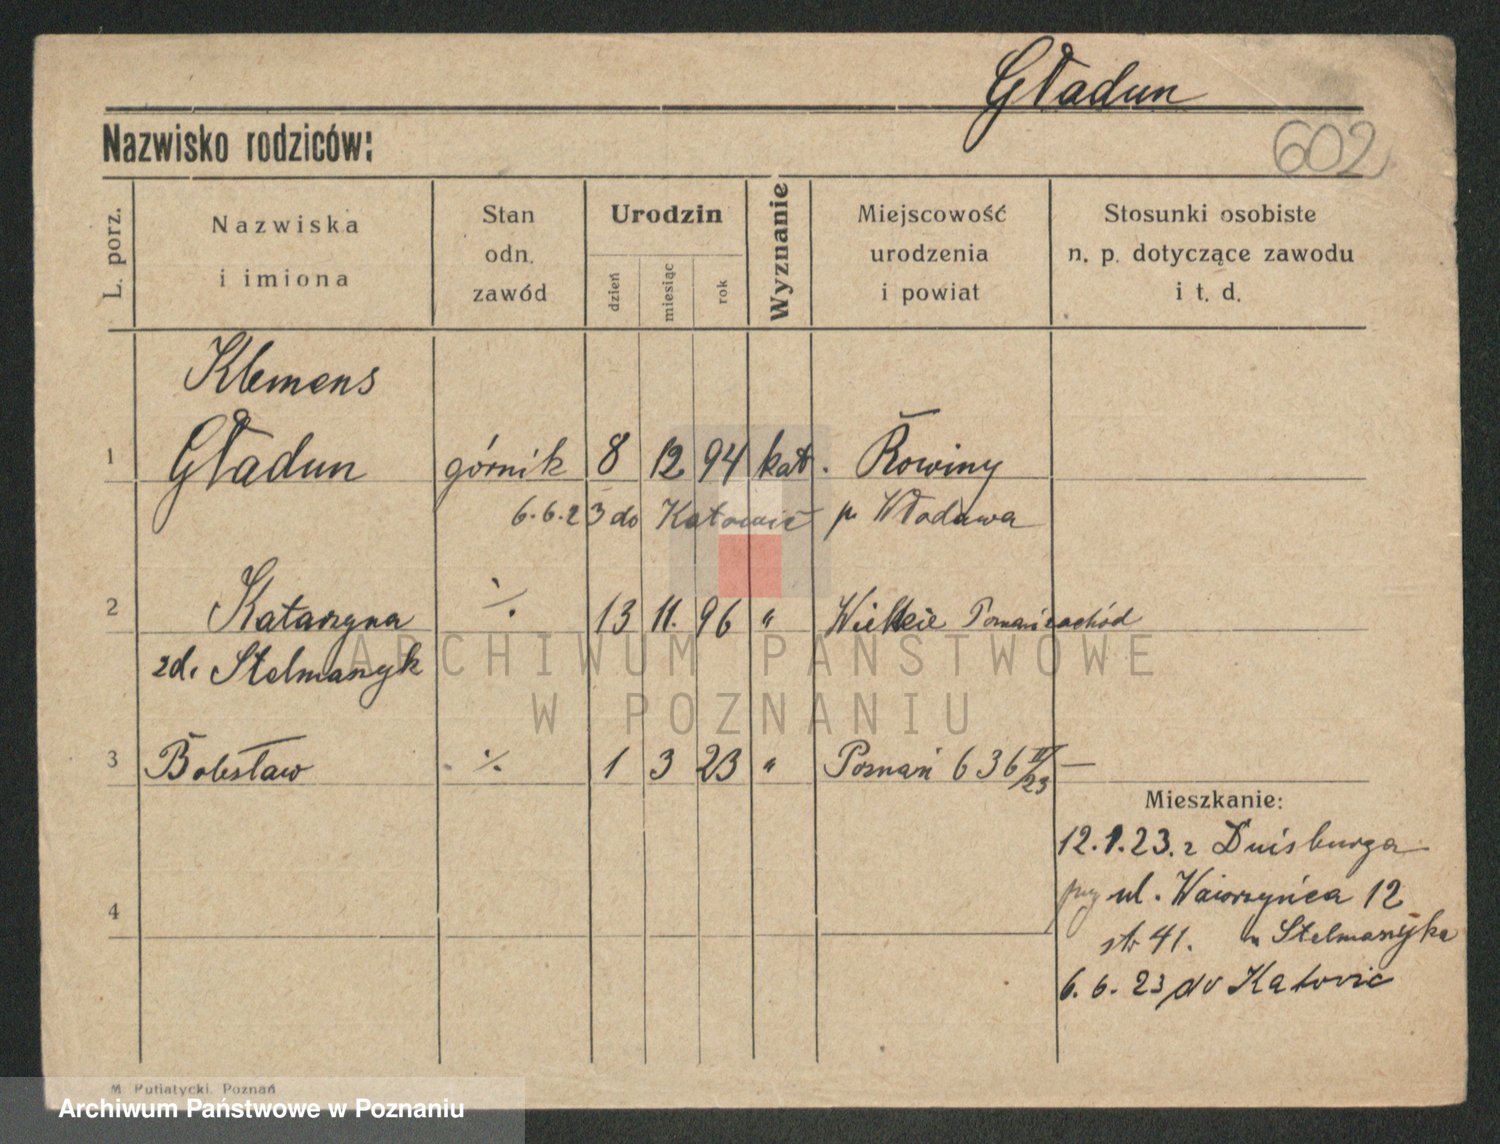 Gładun
Nazwisko rodziców:
602
L. porz.
Nazwiska
i imiona
Stan
odn.
zawód
Urodzin
dzień
miesiąc
rok
Wyznanie
Miejscowość
urodzenia
i powiat
Stosunki osobiste
n. p. dotyczące zawodu
i t. d.
Klemens
1 Gładun górnik 8 12 94 kat. Rowiny
6.6.23 do Katowic p. Włodawa
2 Katarzyna ./. 13 11. 96 " Wielkie Poznań zachód
zd. Stelmaszyk
3 Bolesław ./. 1 3 23 " Poznań 636 II/23 —
Mieszkanie:
12.1.23. z Duisburga
przy ul. Wawrzyńca 12
4
str 41. u Stelmaszyka
6.6.23 do Katowic
M. Putiatycki, Poznań
ARCHIWUM PAŃSTWOWE
W POZNANIU
Archiwum Państwowe w Poznaniu